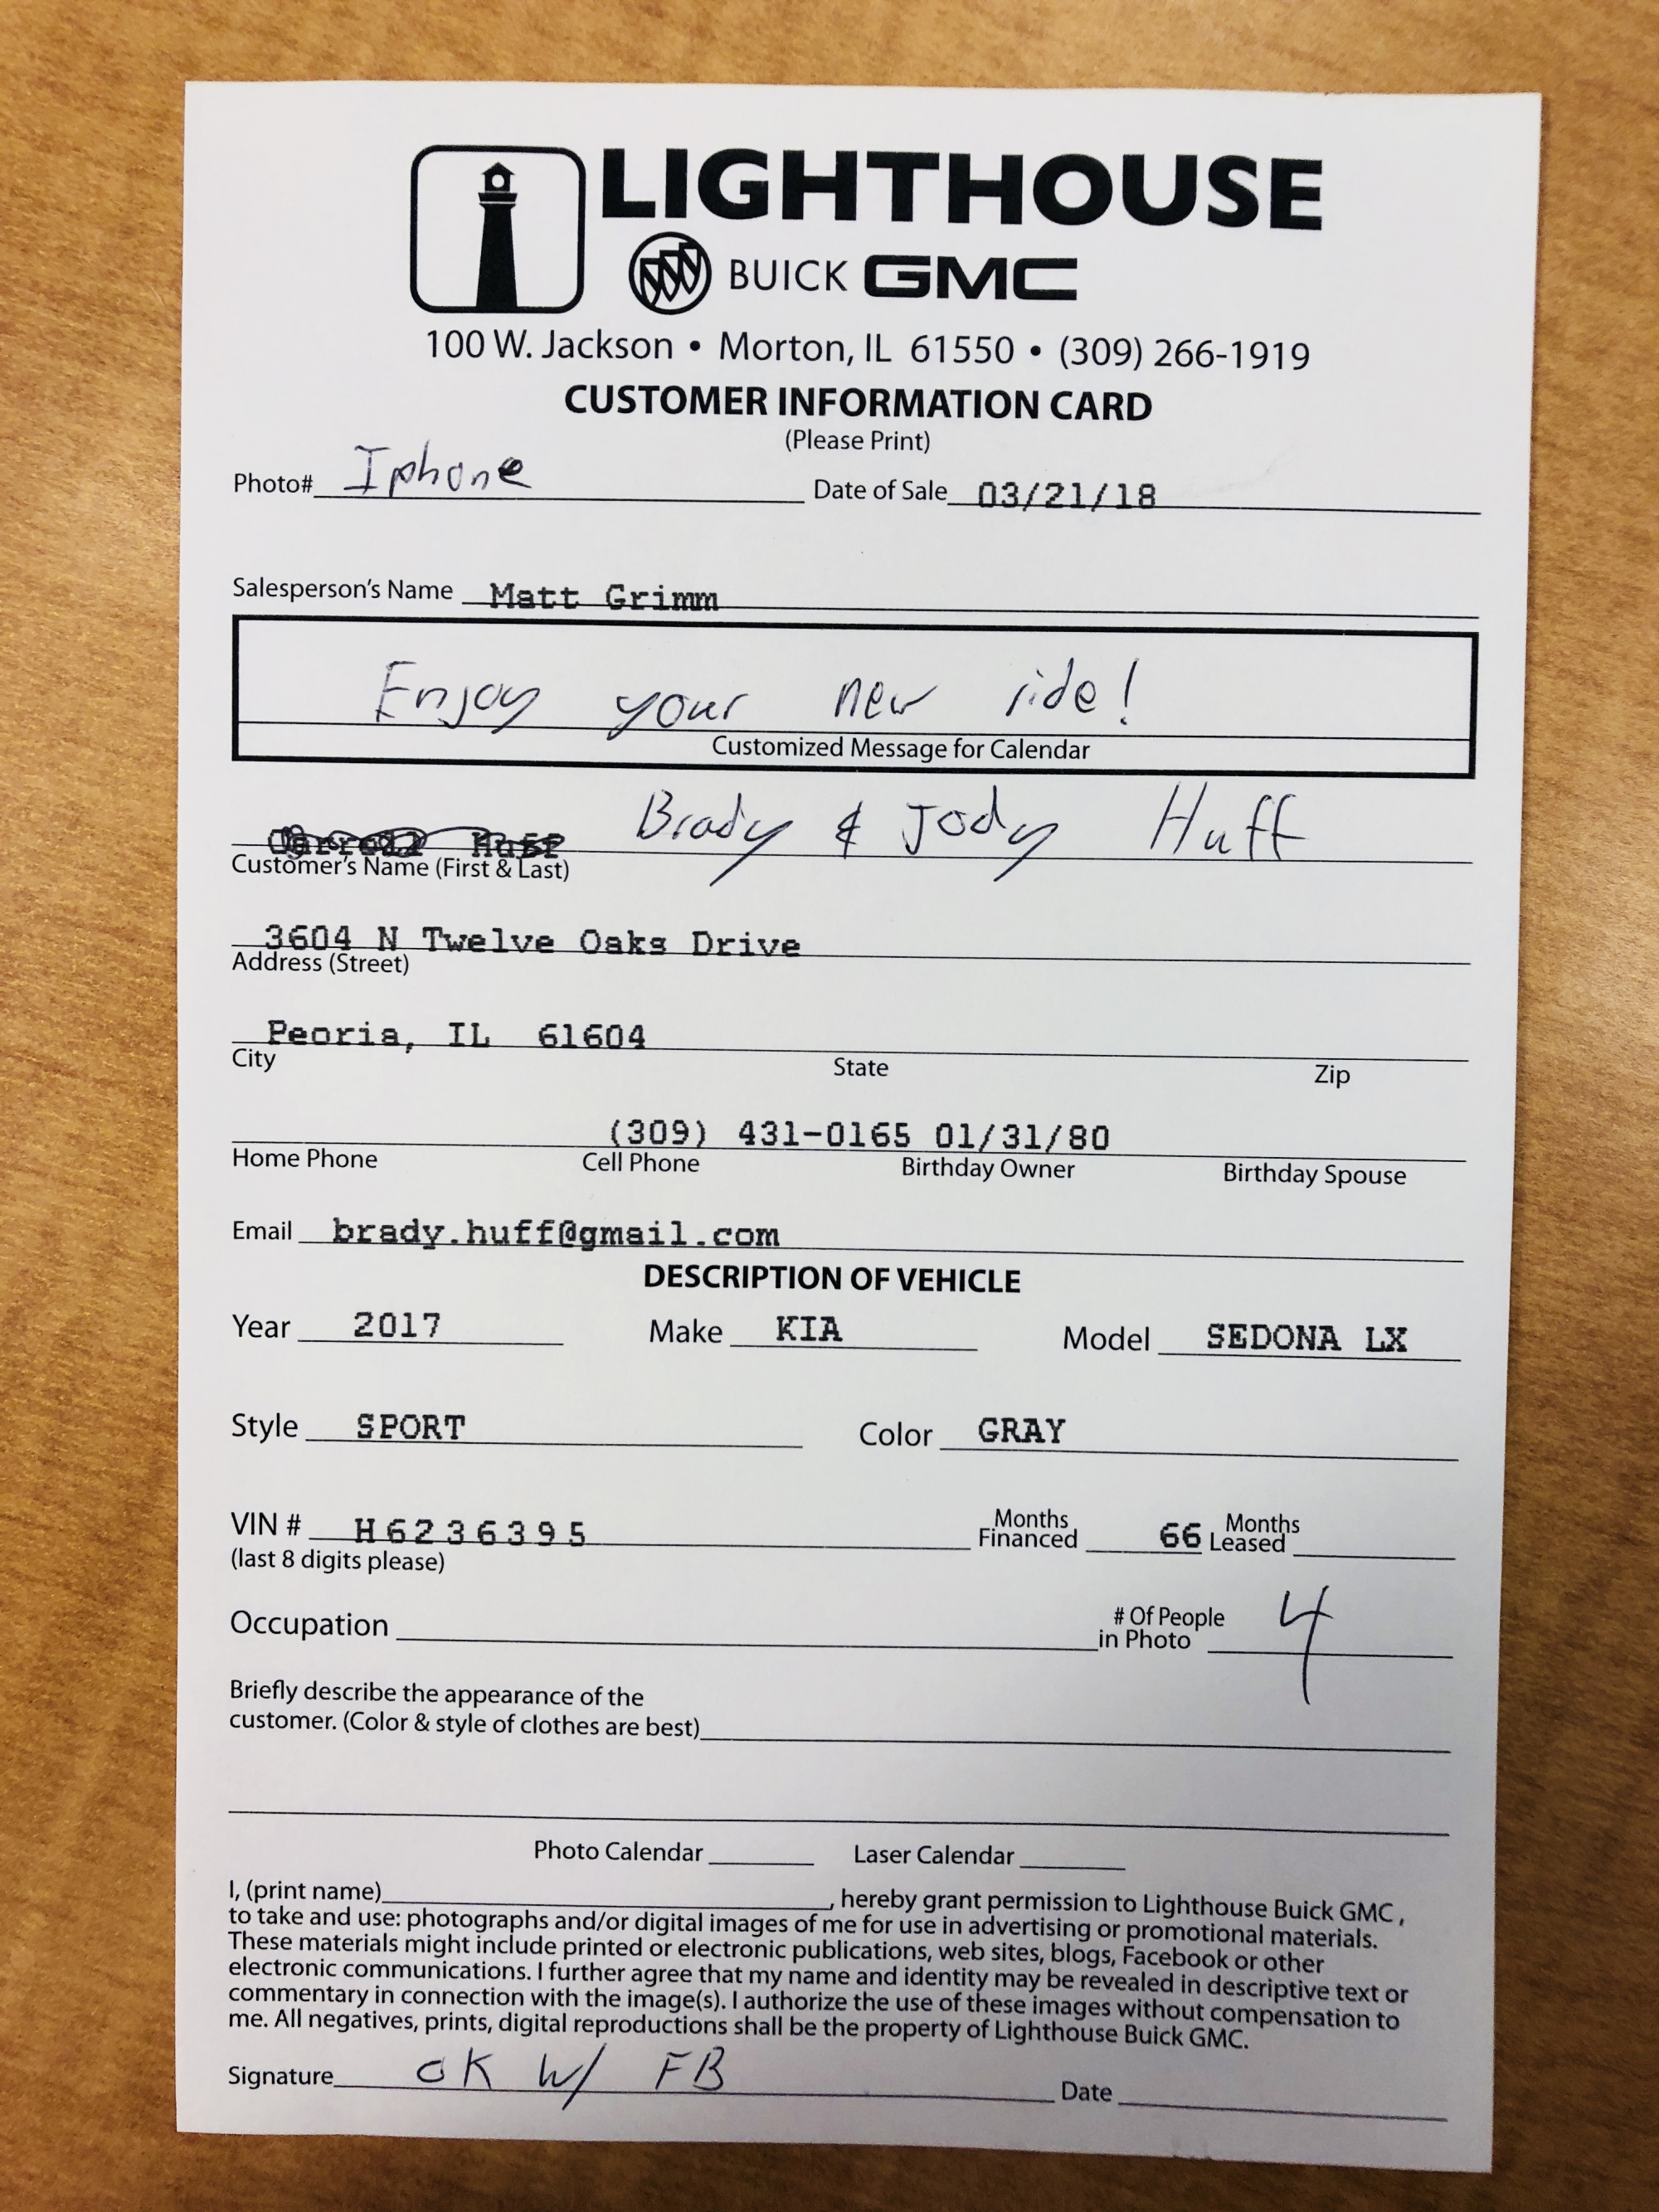 LIGHTHOUSE
BUICK GMC
100 W. Jackson • Morton, IL 61550 • (309) 266-1919
CUSTOMER INFORMATION CARD
(Please Print)
Photo# Iphone Date of Sale 03/21/18
Salesperson's Name Matt Grimm
Enjoy your new ride!
Customized Message for Calendar
Huff Brady & Jody Huff
Customer's Name (First & Last)
3604 N Twelve Oaks Drive
Address (Street)
Peoria, IL 61604
City State Zip
(309) 431-0165 01/31/80
Home Phone Cell Phone Birthday Owner Birthday Spouse
Email brady.huff@gmail.com
DESCRIPTION OF VEHICLE
Year 2017 Make KIA Model SEDONA LX
Style SPORT Color GRAY
VIN # H6236395 Months Financed 66 Months Leased
(last 8 digits please)
Occupation # Of People in Photo 4
Briefly describe the appearance of the
customer. (Color & style of clothes are best)
Photo Calendar Laser Calendar
I, (print name) , hereby grant permission to Lighthouse Buick GMC ,
to take and use: photographs and/or digital images of me for use in advertising or promotional materials.
These materials might include printed or electronic publications, web sites, blogs, Facebook or other
electronic communications. I further agree that my name and identity may be revealed in descriptive text or
commentary in connection with the image(s). I authorize the use of these images without compensation to
me. All negatives, prints, digital reproductions shall be the property of Lighthouse Buick GMC.
Signature OK W/ FB Date